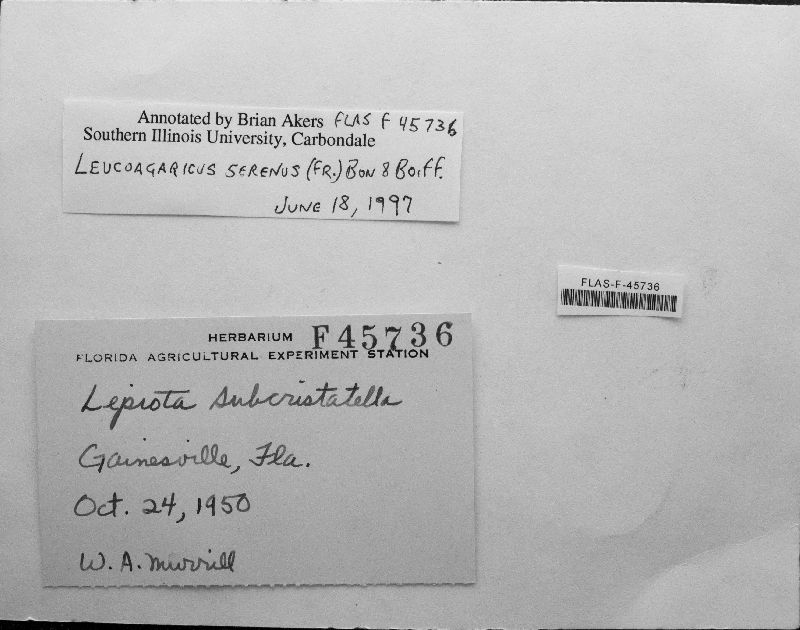 Annotated by Brian Akers FLAS F 45736
Southern Illinois University, Carbondale
LEUCOAGARICUS SERENUS (FR.) BON & BOIFF.
JUNE 18, 1997
FLAS-F-45736
HERBARIUM F45736
FLORIDA AGRICULTURAL EXPERIMENT STATION
Lepiota subcristatella
Gainesville, Fla.
Oct. 24, 1950
W. A. Murrill